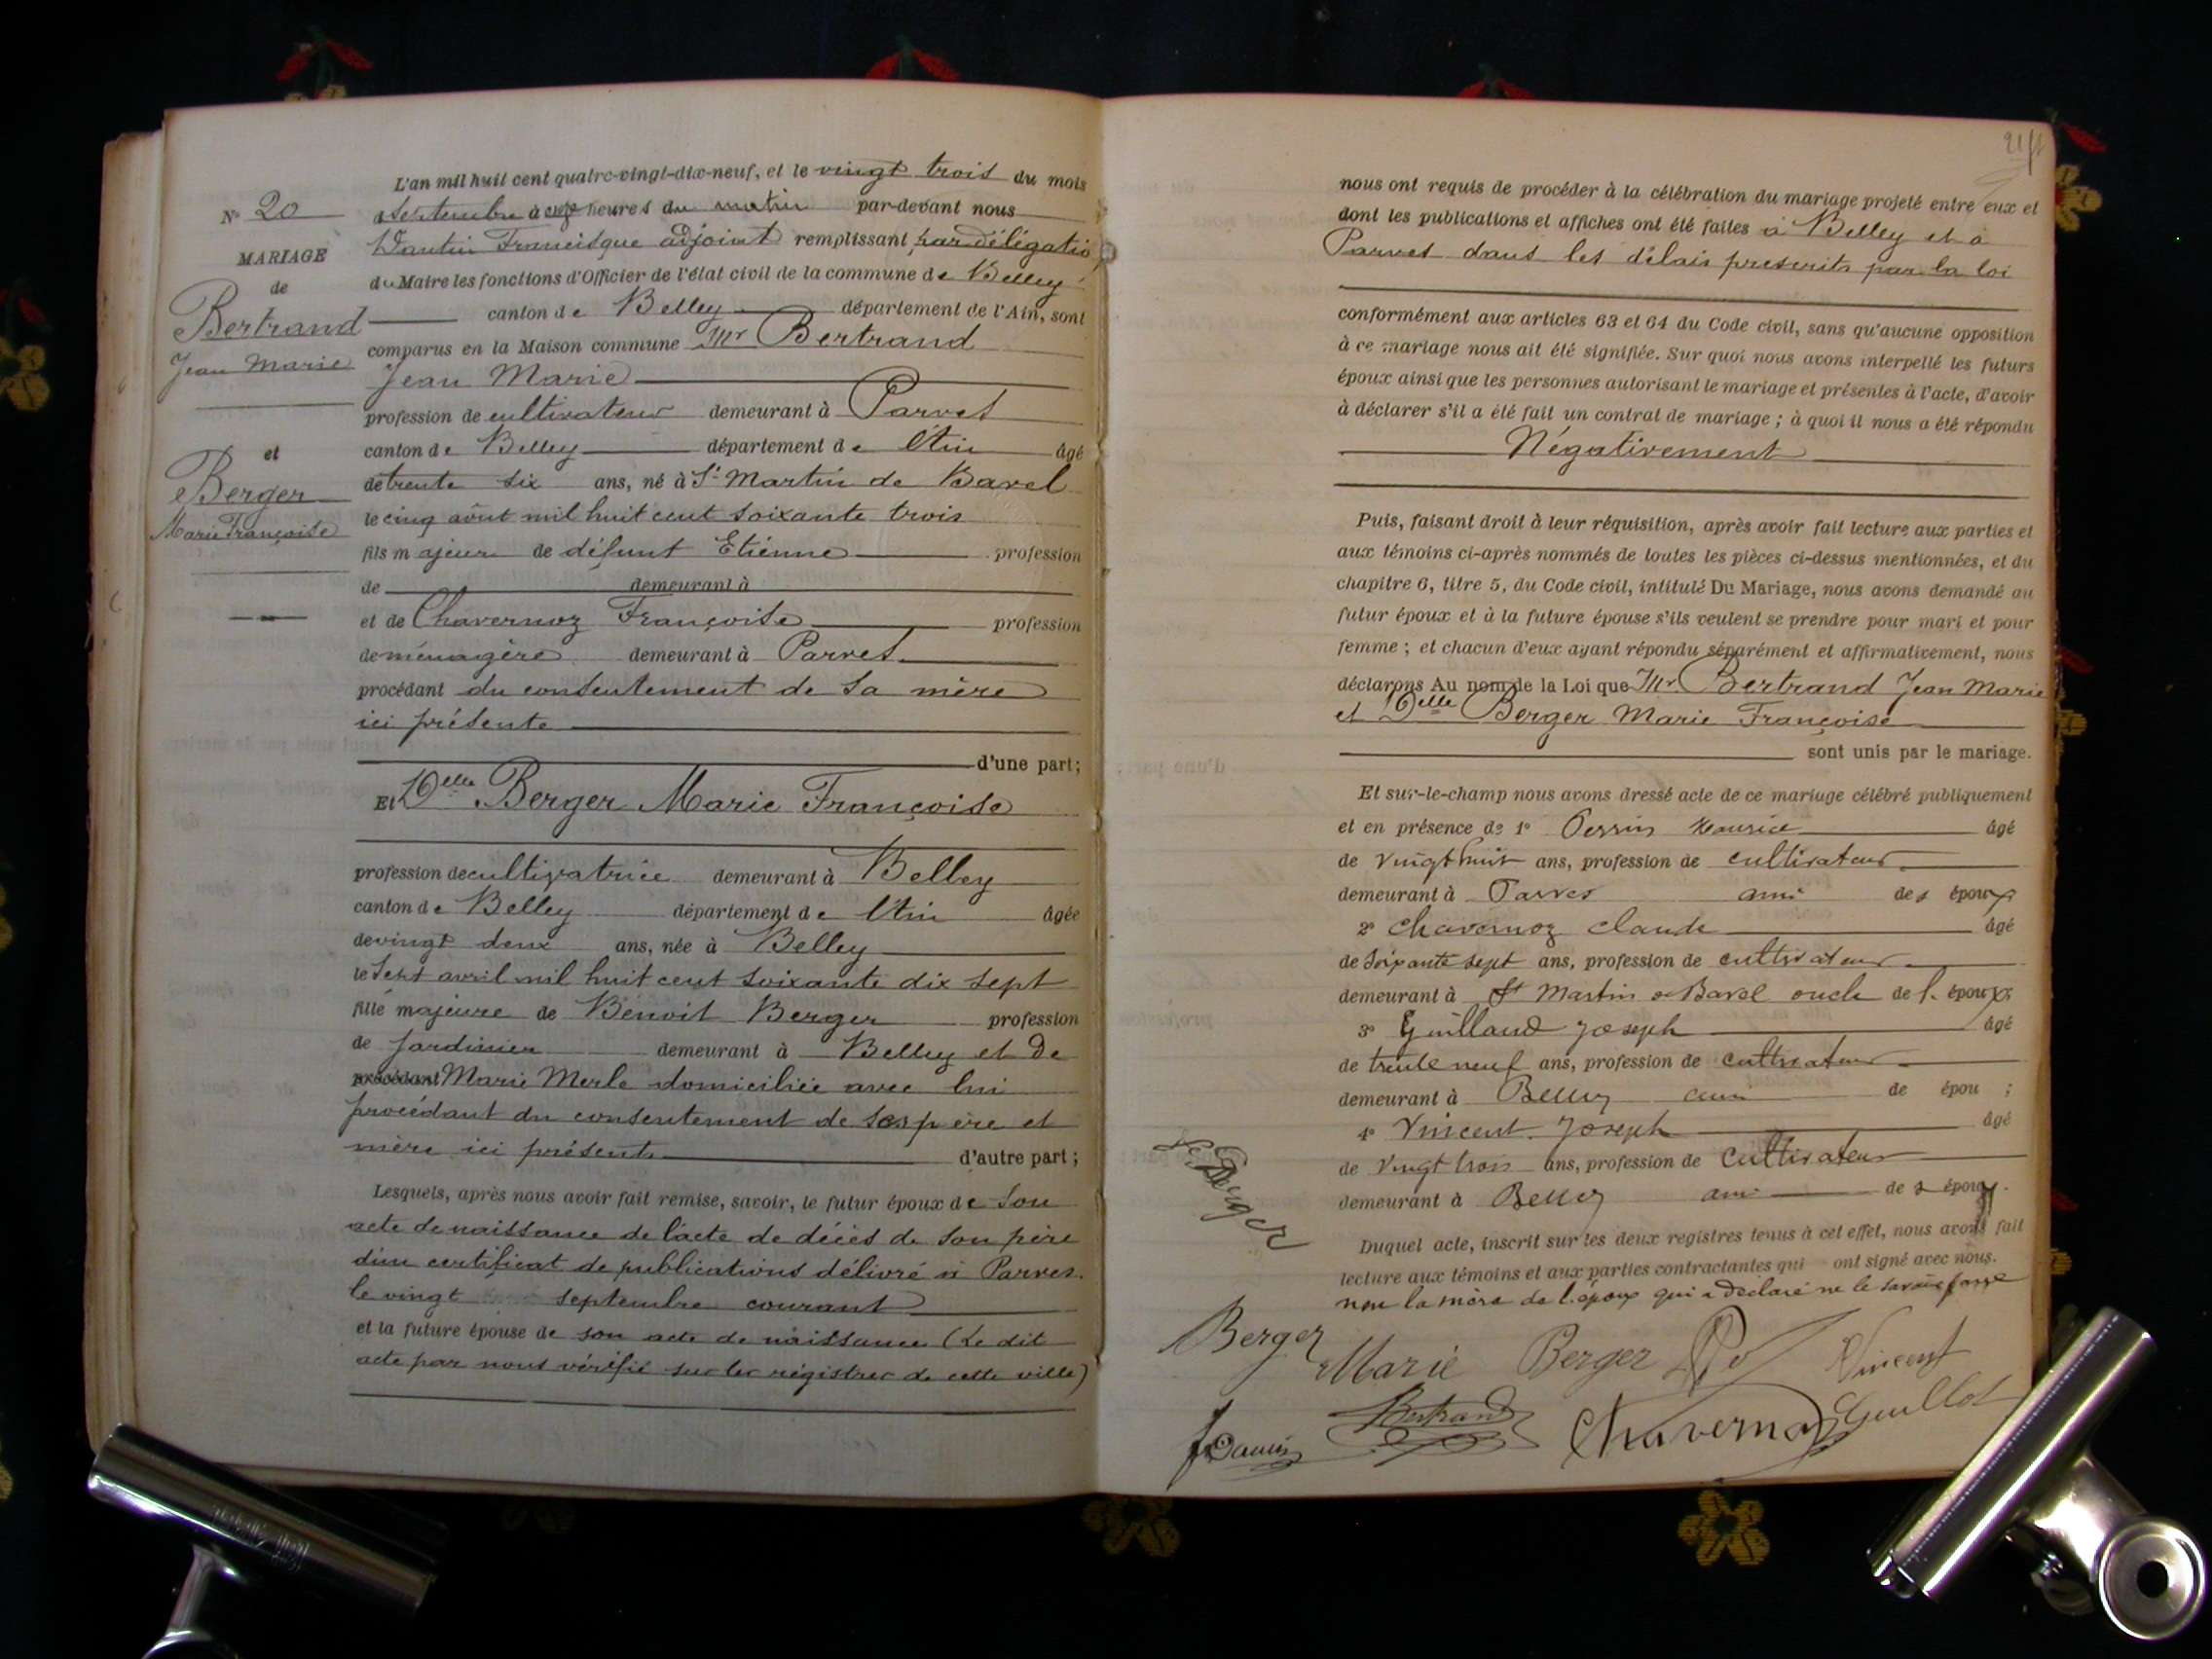 N° 20
MARIAGE
de
Bertrand
Jean Marie
et
Berger
Marie Françoise
L'an mil huit cent quatre-vingt-dix-neuf, et le vingt trois du mois
septembre à heures du matin par-devant nous
Francisque adjoint remplissant par délégatio
du Maire les fonctions d'Officier de l'état civil de la commune de Belley
canton de Belley département de l'Ain, sont
comparus en la Maison commune Mr Bertrand
Jean Marie
profession de cultivateur demeurant à Parves
canton de Belley département de l'Ain âgé
de trente six ans, né à St Martin de Bavel
le cinq août mil huit cent soixante trois
fils majeur de défunt Etienne profession
de demeurant à
et de Chavernoz Françoise profession
de ménagère demeurant à Parves
procédant du consentement de sa mère
ici présente
d'une part;
Et Delle Berger Marie Françoise
profession de cultivatrice demeurant à Belley
canton de Belley département de l'Ain âgée
de vingt deux ans, née à Belley
le sept avril mil huit cent soixante dix sept
fille majeure de Benoit Berger profession
de Jardinier demeurant à Belley et de
procédant Marie Merle domiciliée avec lui
procédant du consentement de ses père et
mère ici présents d'autre part;
Lesquels, après nous avoir fait remise, savoir, le futur époux de son
acte de naissance de l'acte de décès de son père
d'un certificat de publications délivré à Parves
le vingt septembre courant
et la future épouse de son acte de naissance (Le dit
acte par nous vérifié sur les régistres de cette ville)
nous ont requis de procéder à la célébration du mariage projeté entre eux et
dont les publications et affiches ont été faites à Belley et à
Parves dans les délais prescrits par la loi
conformément aux articles 63 et 64 du Code civil, sans qu'aucune opposition
à ce mariage nous ait été signifiée. Sur quoi nous avons interpellé les futurs
époux ainsi que les personnes autorisant le mariage et présentes à l'acte, d'avoir
à déclarer s'il a été fait un contrat de mariage; à quoi il nous a été répondu
Négativement
Puis, faisant droit à leur réquisition, après avoir fait lecture aux parties et
aux témoins ci-après nommés de toutes les pièces ci-dessus mentionnées, et du
chapitre 6, titre 5, du Code civil, intitulé Du Mariage, nous avons demandé au
futur époux et à la future épouse s'ils veulent se prendre pour mari et pour
femme; et chacun d'eux ayant répondu séparément et affirmativement, nous
déclarons Au nom de la Loi que Mr. Bertrand Jean Marie
et Delle Berger Marie Françoise
sont unis par le mariage.
Et sur-le-champ nous avons dressé acte de ce mariage célébré publiquement
et en présence de 1° Perrin Maurice âgé
de vingt huit ans, profession de cultivateur
demeurant à Parves ami des époux
2° Chavernoz Claude âgé
de soixante sept ans, profession de cultivateur
demeurant à St Martin de Bavel oncle de l. époux
3° Guilland Joseph âgé
de trente neuf ans, profession de cultivateur
demeurant à Belley ami de épou ;
4° Vincent Joseph âgé
de vingt trois ans, profession de cultivateur
demeurant à Belley ami des époux.
Duquel acte, inscrit sur les deux registres tenus à cet effet, nous avons fait
lecture aux témoins et aux parties contractantes qui ont signé avec nous.
non la mère de l'époux qui a déclaré ne le savoir
Berger
Berger
Marie Berger
Vincent
Bertrand
Chavernoz